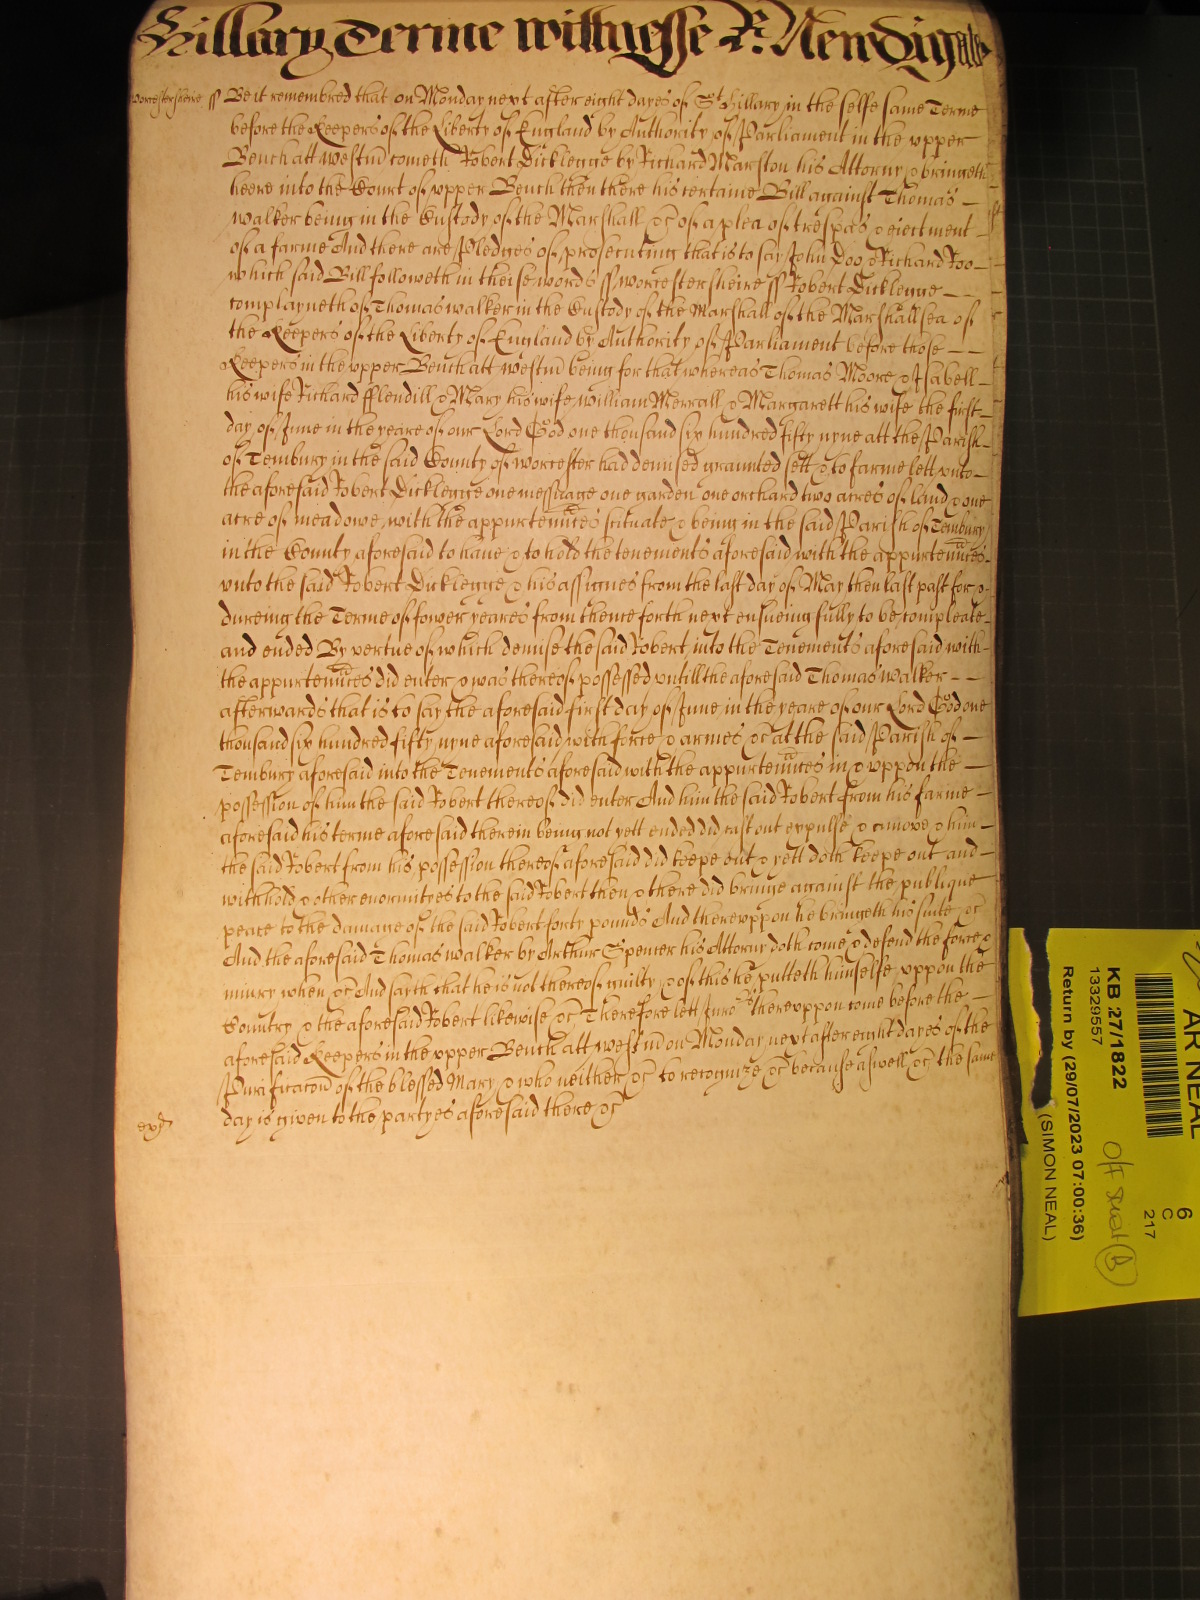 Hillary Terme wittnesse R: Newdigate
Worcestersheire ss Be it remembred that on Monday next after eight dayes of St Hillary in the selfe same Terme
before the Keepers of the Liberty of England by Authority of Parliament in the vpper
Bench att Westm̃ cometh Robert Dicklegge by Richard Marston his Attorny & bringeth
heere into the Court of vpper Bench then there his certaine Bill against Thomas —
Walker being in the Custody of the Marshall &c̃ of a plea of trespas & eiectment —
of a farme And there are Pledges of prosecuting that is to say John Doo & Richard Roo —
which said Bill followeth in theise words ss Worcestersheire ss Robert Dicklegge — —
complayneth of Thomas Walker in the Custody of the Marshall of the Marshallsea of
the Keepers of the Liberty of England by Authority of Parliament before those — —
Keepers in the vpper Bench att Westm̃ being for that whereas Thomas Moore & Isabell —
his wife Richard fflendill & Mary his wife William Merrall & Margarett his wife the first —
day of June in the yeare of our Lord God one thousand six hundred fifty nyne att the Parish —
of Tembury in the said County of Worcester had demised graunted sett & to farme lett vnto —
the aforesaid Robert Dicklegge one messuage one garden one orchard two acres of land & one
acre of meadowe with the appurtenn̄ces scituate & being in the said Parish of Tembury
in the County aforesaid to haue & to hold the tenements aforesaid with the appurtenn̄ces
vnto the said Robert Dicklegge & his assignes from the last day of May then last past for &
dureing the Terme of fower yeares from thence forth next ensueing fully to be compleate —
and ended By vertue of which demise the said Robert into the Tenements aforesaid with —
the appurtenn̄ces did enter & was thereof possessed vntill the aforesaid Thomas Walker — —
afterwards that is to say the aforesaid first day of June in the yeare of our Lord God one
thousand six hundred fifty nyne aforesaid with force & armes &c̃ at the said Parish of —
Tembury aforesaid into the Tenements aforesaid with the appurtenn̄ces in & vppon the —
possession of him the said Robert thereof did enter And him the said Robert from his farme —
aforesaid his terme aforesaid therein being not yett ended did cast out expulse & amove & him —
the said Robert from his possession thereof aforesaid did keepe out & yett doth keepe out and —
withhold & other enormityes to the said Robert then & there did bringe against the publique
peace to the damage of the said Robert forty pounds And therevppon he bringeth his suite &c̃
And the aforesaid Thomas Walker by Arthur Spencer his Attorny doth come & defend the force &
iniury when &c̃ And sayth that he is not thereof guilty & of this he putteth himselfe vppon the
Country & the aforesaid Robert likewise &c̃ Therefore lett Juro͛s therevppon come before the —
aforesaid Keepers in the vpper Bench att Westm̃ on Monday next after eight dayes of the
Purificac̃on of the blessed Mary & who neither &c̃ to recognize &c̃ because aswell &c̃ the same
day is given to the partyes aforesaid there &c̃
AR NEAL
6
C
217
KB 27/1822
13329557
Return by (29/07/2023 07:00:36)
(SIMON NEAL)